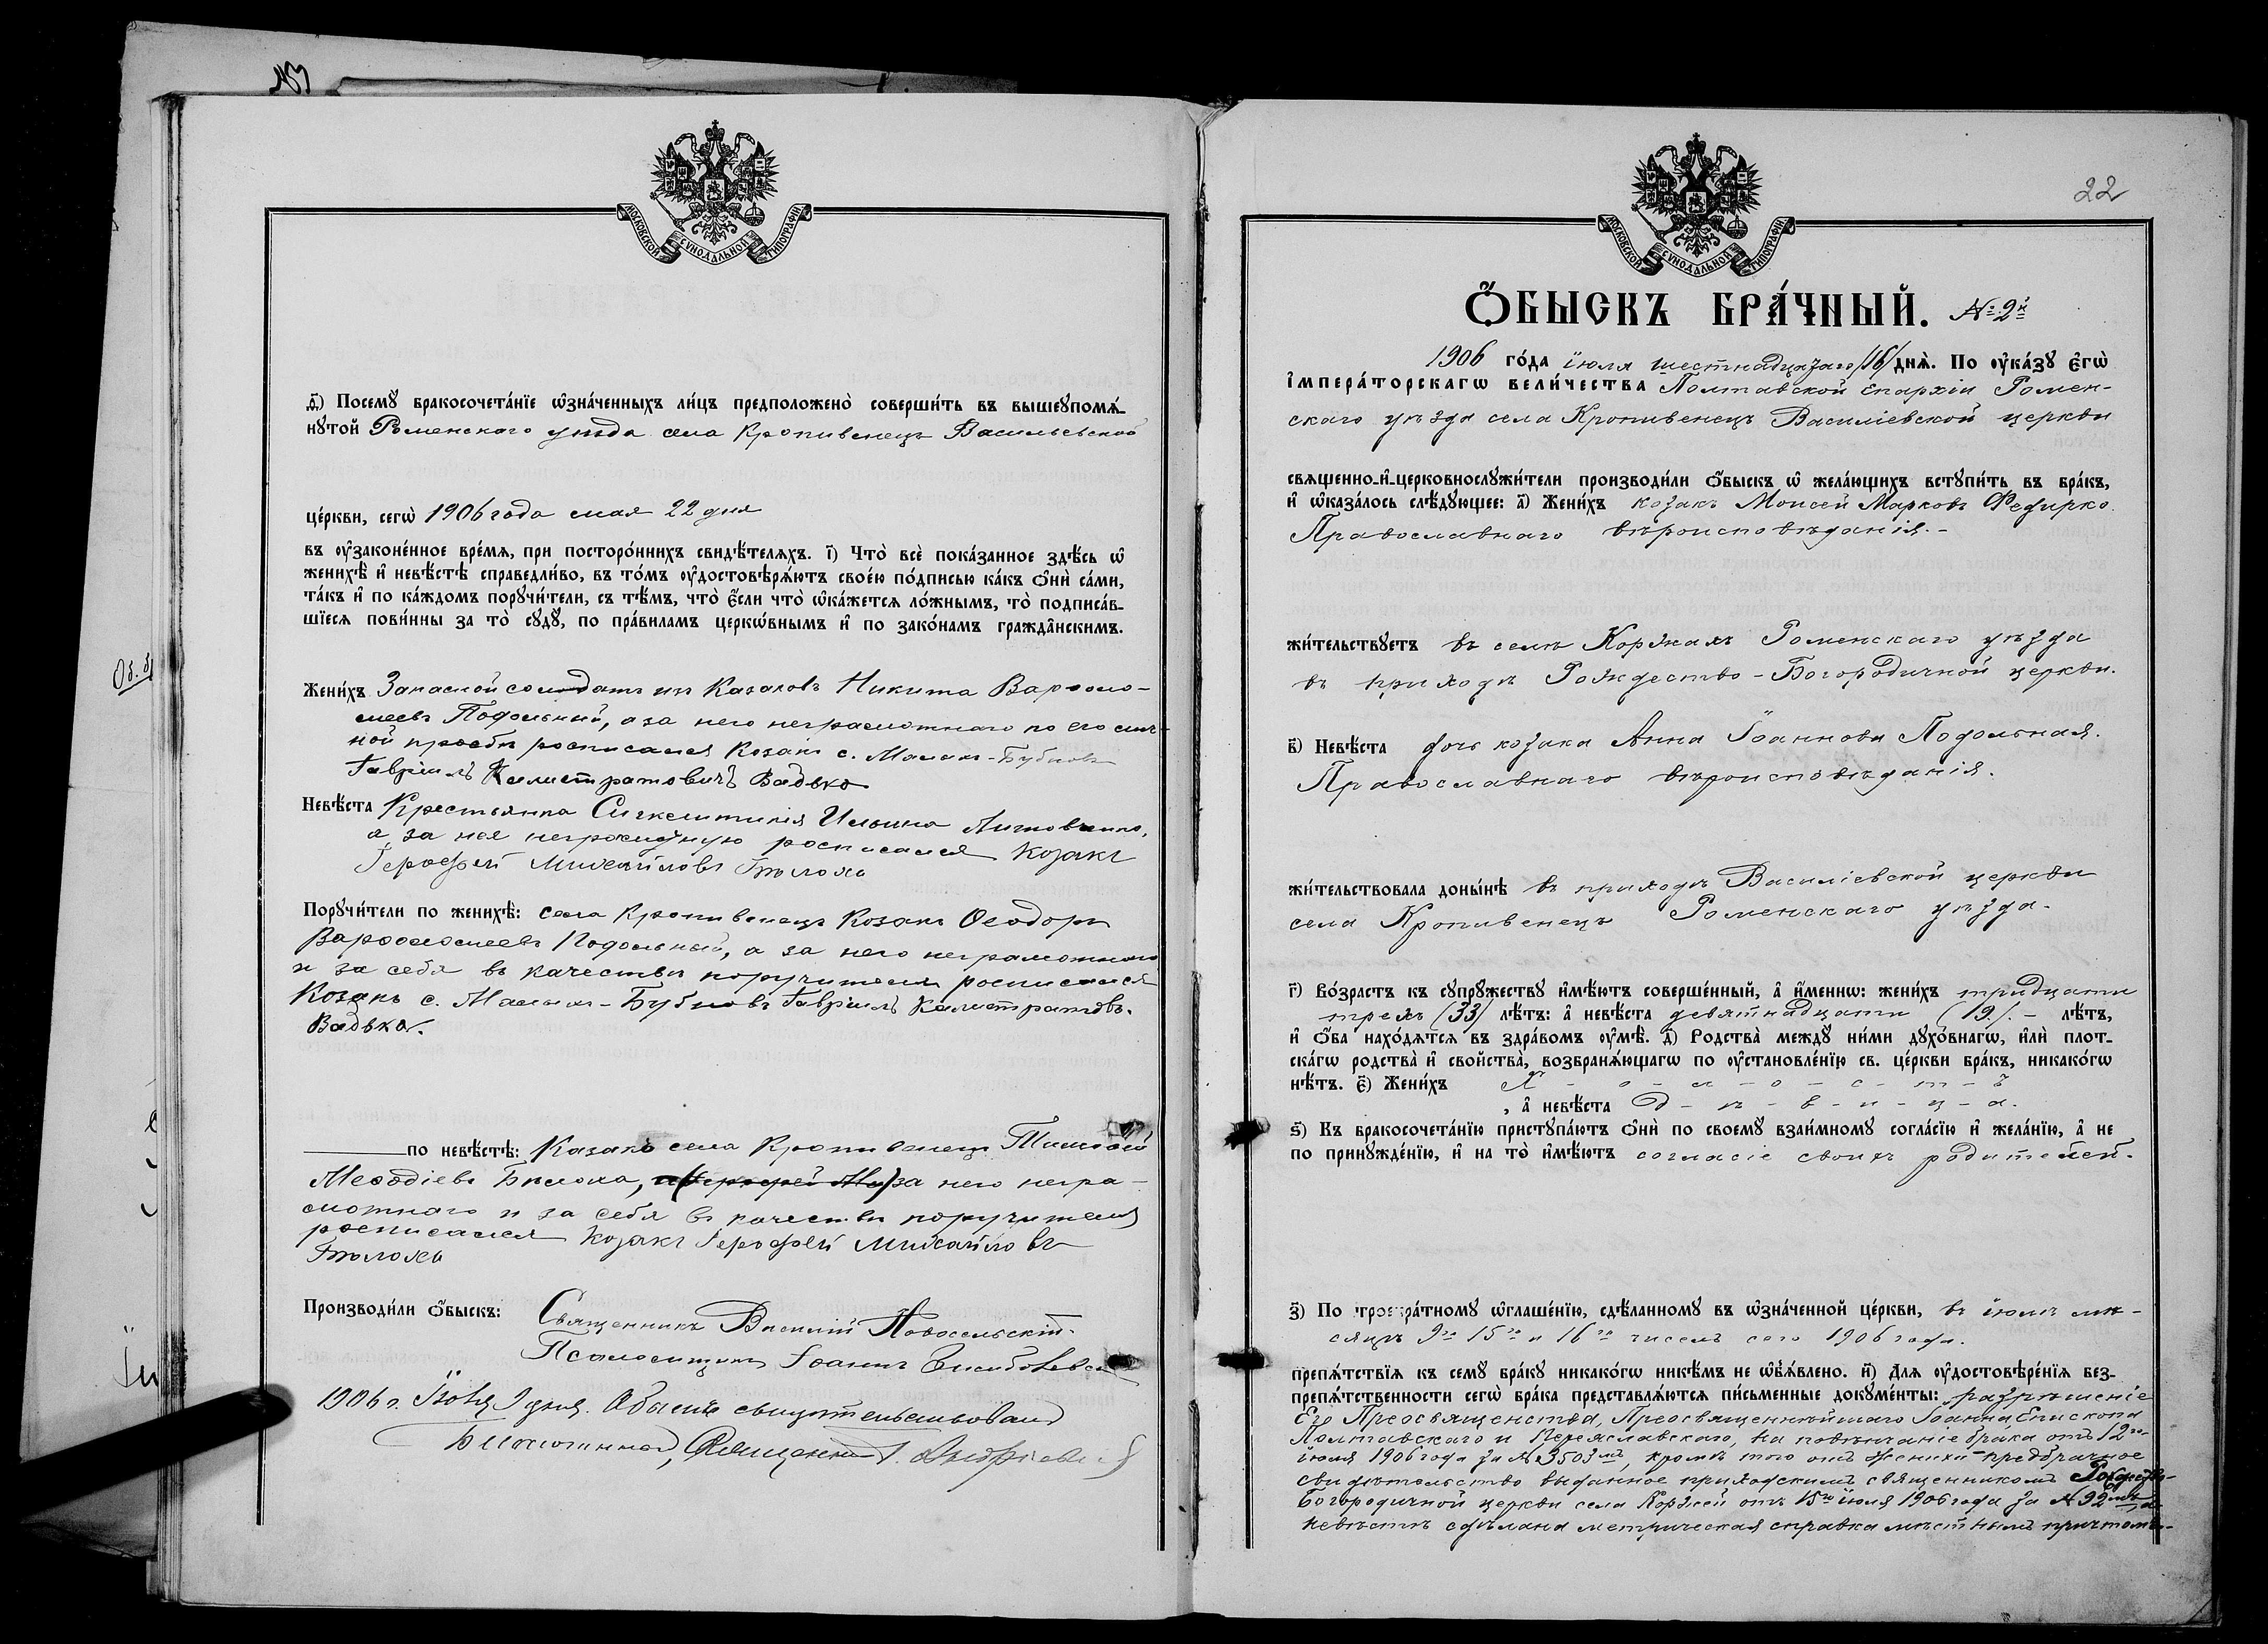 МОСКОВСКОЙ СѴНОДАЛЬНОЙ ТИПОГРАФІИ
ѳ҃) Посемꙋ бракосочета́нїе ѡ҆зна́ченныхъ ли́цъ предположено̀ соверши́ть въ вышеꙋпомѧ́-
нꙋтой Роменскаго уѣзда села Кропивенецъ Васильевской
це́ркви, сегѡ̀ 1906 года мая 22 дня
въ ᲂу҆законе́нное вре́мѧ, при посторо́ннихъ свидѣ́телѧхъ. і҃) Что̀ всѐ пока́занное здѣ́сь ѡ҆
женихѣ̀ и҆ невѣ́стѣ справедли́во, въ то́мъ ᲂу҆достовѣрѧ́ютъ свое́ю по́дписью ка́къ ѻ҆нѝ са́ми,
та́къ и҆ по ка́ждомъ порꙋчи́тели, съ тѣ́мъ, что̀ є҆́сли что̀ ѡ҆ка́жетсѧ ло́жнымъ, то̀ подписа́в-
шїесѧ пови́нны за то̀ сꙋдꙋ̀, по пра́виламъ церкѡ́внымъ и҆ по зако́намъ гражда̂нскимъ.
Жени́хъ Запасной солдатъ изъ Казаковъ Никита Варѳоло-
меевъ Подольный, а за него неграмотнаго по его лич-
ной просьбѣ росписался Козакъ с. Малыхъ-Бубновъ
Гавріилъ Калистратовичъ Вадько
Невѣ́ста Крестьянка Синклитикія Ильина Литовченко,
а за нея неграмотную росписался Козакъ
Герофей Михайловъ Білоха
Порꙋчи́тели по женихѣ̀: села Кропивенецъ Козакъ Ѳеодоръ
Варѳоломеевъ Подольный, а за него неграмотнаго
и за себя въ качествѣ поручителя росписался
Козакъ с. Малыхъ-Бубновъ Гавріилъ Калистратовъ
Вадька.
по невѣ́стѣ: Казакъ села Кропивенецъ Тимофей
Меѳодіевъ Билоха, а (Герофей Ми) за него негра-
мотнаго и за себя въ качествѣ поручителя
росписался Козакъ Герофей Михайловъ
Білоха
Производи́ли ѻ҆́быскъ: Священникъ Василій Новосельскій.
Псаломщикъ Іоаннъ
1906 г. Іюня 9 дня. Обыскъ свидѣтельствовалъ
Благочинный, Священникъ І.
22
МОСКОВСКОЙ СѴНОДАЛЬНОЙ ТИПОГРАФІИ
Ѻ҆́БЫСКЪ БРА́ЧНЫЙ. № 2й
1906 го́да іюля шестнадцатаго /16/ днѧ̀. По ᲂу҆ка́зꙋ є҆гѡ̀
і҆мпера́торскагѡ вели́чества Полтавской Епархіи Ромен-
скаго уѣзда села Кропивенецъ Василіевской церкви
свѧщенно-и҆-церковнослꙋжи́тели производи́ли ѻ҆́быскъ ѡ҆ жела́ющихъ встꙋпи́ть въ бра́къ,
и҆ ѡ҆каза́лось слѣ́дꙋющее: а҃) Жени́хъ козакъ Моисей Марковъ Федирко
Православнаго вѣроисповѣданія.-
жи́тельствꙋетъ въ селѣ Коржахъ Роменскаго уѣзда
въ приходѣ Рождество-Богородичной церкви.
в҃) Невѣ́ста дочь козака Анна Іоаннова Подольная.
Православнаго вѣроисповѣданія.
жи́тельствовала доны́нѣ въ приходѣ Василіевской церкви
села Кропивенецъ Роменскаго уѣзда.
г҃) Во́зрастъ къ сꙋпрꙋ́жествꙋ и҆мѣ́ютъ соверше́нный, а҆ и҆́меннѡ: жени́хъ тридцати
трехъ (33) лѣ́тъ: а҆ невѣ́ста девятнадцати (19). - лѣ́тъ,
и҆ ѻ҆́ба нахо́дѧтсѧ въ здра́вомъ ᲂу҆мѣ̀. д҃) Родства̀ междꙋ ни́ми дꙋхо́внагѡ, и҆лѝ плот-
ска́гѡ родства̀ и҆ свойства̀, возбранѧ́ющагѡ по ᲂу҆становле́нїю св. це́ркви бра́къ, никако́гѡ
нѣ́тъ. є҃) Жени́хъ Х - о - л - о - с - т - ъ
, а҆ невѣ́ста Д - ѣ - в - и - ц - а.
ѕ҃) Къ бракосочета́нїю пристꙋпа́ютъ ѻ҆нѝ по своемꙋ взаи́мномꙋ согла́сїю и҆ жела́нїю, а҆ не
по принꙋжде́нїю, и҆ на то̀ и҆мѣ́ютъ согласіе своихъ родителей.
з҃) По троекра́тномꙋ ѡ҆глаше́нїю, сдѣ́ланномꙋ въ ѡ҆зна́ченной це́ркви, въ іюлѣ мѣ-
сяцѣ 9го 15го и 16го чиселъ сего 1906 года.
препѧ́тствїѧ къ семꙋ̀ бра́кꙋ никако́гѡ никѣ́мъ не ѡ҆б̾ѧ́влено. и҃) Длѧ ᲂу҆достовѣре́нїѧ без-
препѧ́тственности сегѡ̀ бра́ка представлѧ́ютсѧ пи́сьменные докꙋме́нты: разрѣшеніе
Его Преосвященства, Преосвященнѣйшаго Іоанна Епископа
Полтавскаго и Переяславскаго, на повѣнчаніе брака отъ 12го
іюля 1906 года за № 3503мъ, кромѣ того отъ жениха предбрачное
свидѣтельство выданное приходскимъ священникомъ Рождество-
Богородичной церкви села Коржей отъ 15го іюля 1906 года за № 92мъ, а
невѣстѣ сдѣлана метрическая справка мѣстнымъ причтомъ.-